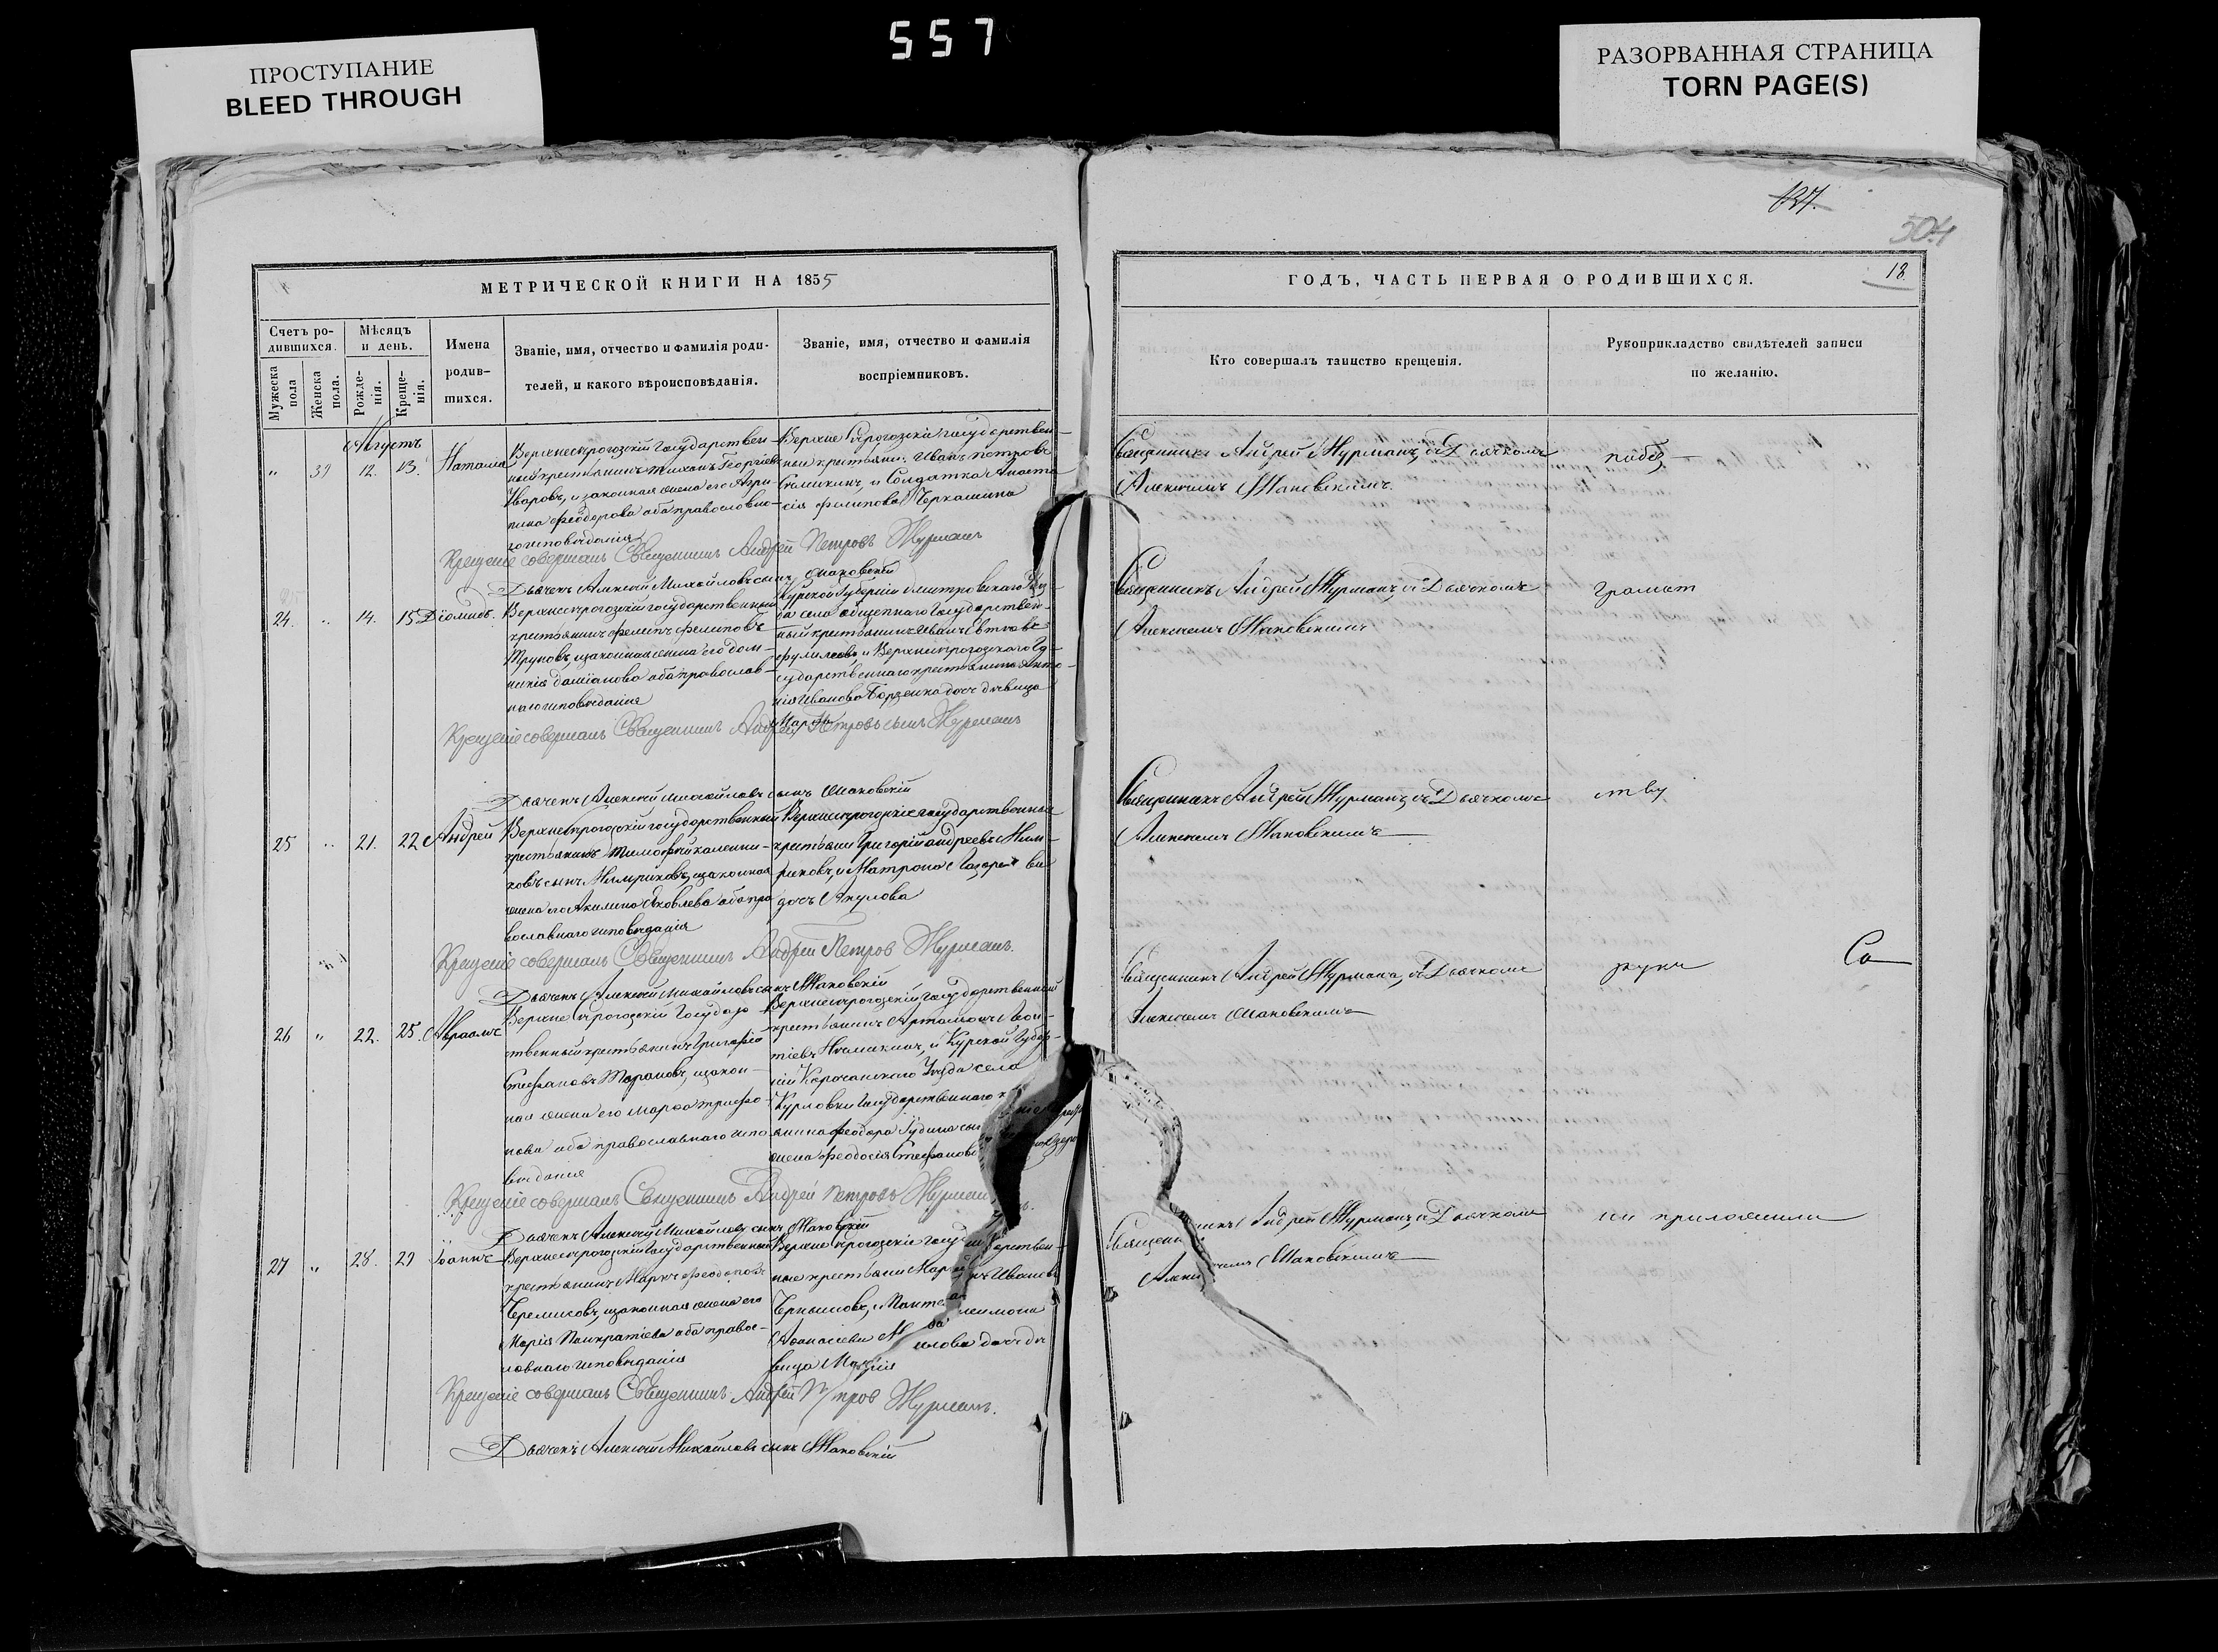 557
ПРОСТУПАНИЕ
BLEED THROUGH
РАЗОРВАННАЯ СТРАНИЦА
TORN PAGE(S)
137.
504
МЕТРИЧЕСКОЙ КНИГИ НА 1855
ГОДЪ, ЧАСТЬ ПЕРВАЯ О РОДИВШИХСЯ.
18
Счетъ ро-
дившихся.
Мужеска
пола
Женска
пола.
Мѣсяцъ
и день.
Рожде-
нія.
Креще-
нія.
Имена
родив-
шихся.
Званіе, имя, отчество и фамилія роди-
телей, и какого вѣроисповѣданія.
Званіе, имя, отчество и фамилія
воспріемниковъ.
Кто совершалъ таинство крещенія.
Рукоприкладство свидѣтелей записи
по желанію.
Августъ
" 39 12. 13. Наталія
Верхнесерогозскій государствен-
ный крестьянинъ Георгіевъ
Уваровъ, и законная жена его Агри-
пина Феодорова оба православна-
го исповѣданія
Верхне Серогозскіе государствен-
ные крестьяни: Иванъ Петровъ
и Солдатка Анаста
сія Филипова Черкашина
Священникъ Андрей Журманъ, съ Дьячкомъ
Алексеемъ Маковскимъ.
Крещеніе совершалъ Священникъ Андрей Петровъ Журманъ
Дьячекъ Алексей Михайловъ сынъ Маковскій
24. " 14. 15 Діомидъ.
Верхнесерогозскій государственный
крестьянинъ Филипъ Филиповъ
Труновъ, и законная жена его Дом-
никія Даміанова оба православ-
наго исповѣданія
Курской Губерніи Дмитровскаго Уез-
да села государствен-
ный крестьянинъ Иванъ
и Верхнесерогозскаго Го-
сударственнаго крестьянина Анто-
нія Иванова Борзенка дочь дѣвица
Марѳа
Священникъ Андрей Журманъ, съ Дьячкомъ
Алексеемъ Маковскимъ
грамот
Крещеніе совершалъ Священникъ Андрей Петровъ сынъ Журманъ
Дьячекъ Алексей Михайловъ сынъ Маковскій
25 " 21. 22 Андрей
Верхнесерогозскій государственный
крестьянинъ Тимофей Калени-
ковъ сынъ и законная
жена его Акилина Яковлева оба пра
вославнаго исповѣданія
Верхнесерогозскіе государственные
крестьяни Григорій Андреевъ
и Матрона Лазарева
дочь Акулова
Священникъ Андрей Журманъ, съ Дьячкомъ
Алексеемъ Маковскимъ
ству
Крещеніе совершалъ Священникъ Андрей Петров Журманъ.
Дьячекъ Алексей Михайловъ сынъ Маковскій
26 " 22. 25. Авраамъ
Верхне Серогозскій Государ-
ственный крестьянинъ Григорій
Стефановъ Тарановъ, и закон-
ная жена его Марѳа Трифо-
нова оба православнаго испо
вѣданія
Верхнесерогозскій государственный
крестьянинъ Артамонъ Леон-
тіевъ и Курской Губер-
ніи Корочанскаго Уезда села
Курловки Государственнаго
Феодора Іудина
жена Феодосія Стефанова
Священникъ Андрей Журманъ, съ Дьячкомъ
Алексеемъ Маковскимъ
руки
Са
Крещеніе совершалъ Священникъ Андрей Петровъ Журманъ.
Дьячекъ Алексей Михайловъ сынъ Маковскій
27 " 28. 29 Іоаннъ
Верхнесерогозскій государственный
крестьянинъ Маркъ
Черемисовъ, и законная жена его
Марія Панкратіева оба право-
славнаго исповѣданія
Верхне серогозскіе государствен-
ные крестьяни Ивановъ
Чернышовъ, и Пантелеимона
Аѳанасіева дочь дѣ
вица Марія
Священникъ Андрей Журманъ, съ Дьячкомъ
Алексеемъ Маковскимъ
не приложили
Крещеніе совершалъ Священникъ Андрей Петров Журманъ.
Дьячекъ Алексей Михайловъ сынъ Маковскій